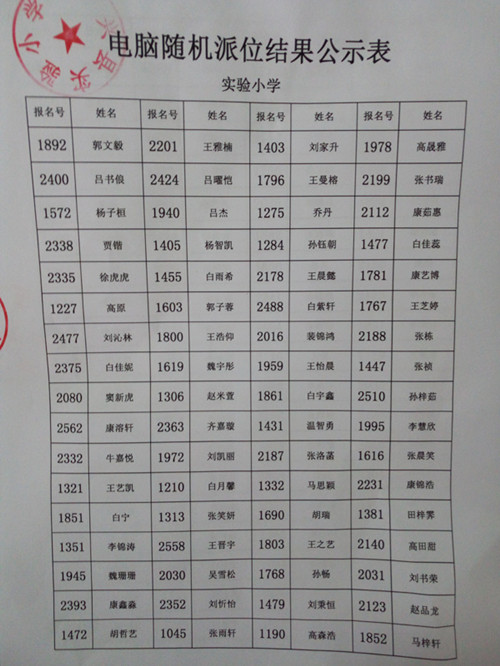 电脑随机派位结果公示表
实验小学
报名号 姓名 报名号 姓名 报名号 姓名 报名号 姓名
1892 郭文毅 2201 王雅楠 1403 刘家升 1978 高晟雅
2400 吕书俍 2424 吕曜恺 1796 王曼榕 2199 张书瑞
1572 杨子桓 1940 吕杰 1275 乔丹 2112 康茹惠
2338 贾锴 1405 杨智凯 1284 孙钰朝 1477 白佳蕊
2335 徐虎虎 1455 白雨希 2178 王晨懿 1781 康艺博
1227 高原 1603 郭子蓉 2488 白紫轩 1767 王芝婷
2477 刘沁林 1800 王浩仰 2016 裴锦鸿 2188 张栋
2375 白佳妮 1619 魏宇彤 1959 王怡晨 1447 张祯
2080 窦新虎 1306 赵米萱 1861 白宇鑫 2510 孙梓茹
2562 康溶轩 2363 齐嘉璇 1431 温智勇 1995 李慧欣
2332 牛嘉悦 1972 刘凯丽 2187 张洛菡 1616 张晨笑
1321 王艺凯 1210 白月馨 1332 马思颖 2231 康锦浩
1851 白宁 1313 张笑妍 1690 胡瑞 1381 田梓霁
1351 李锦涛 2558 王晋宇 1803 王之艺 2140 高田甜
1945 魏珊珊 2030 吴雪松 1768 孙畅 2031 刘书荣
2393 康鑫淼 2352 刘忻怡 1479 刘秉恒 2123 赵品龙
1472 胡哲艺 1045 张雨轩 1190 高森浩 1852 马梓轩